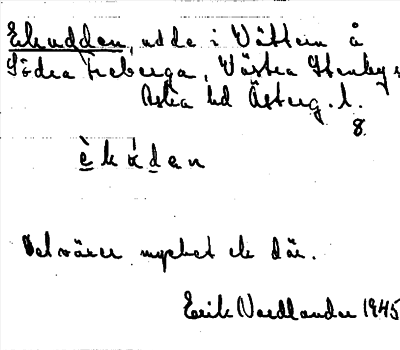 Ekudden, udde i Vättern å
Södra Freberga, Västra Stenby s
Aska hd Österg. l.
8
èkúdən
Det växer mycket ek där.
Erik Nordlander 1945